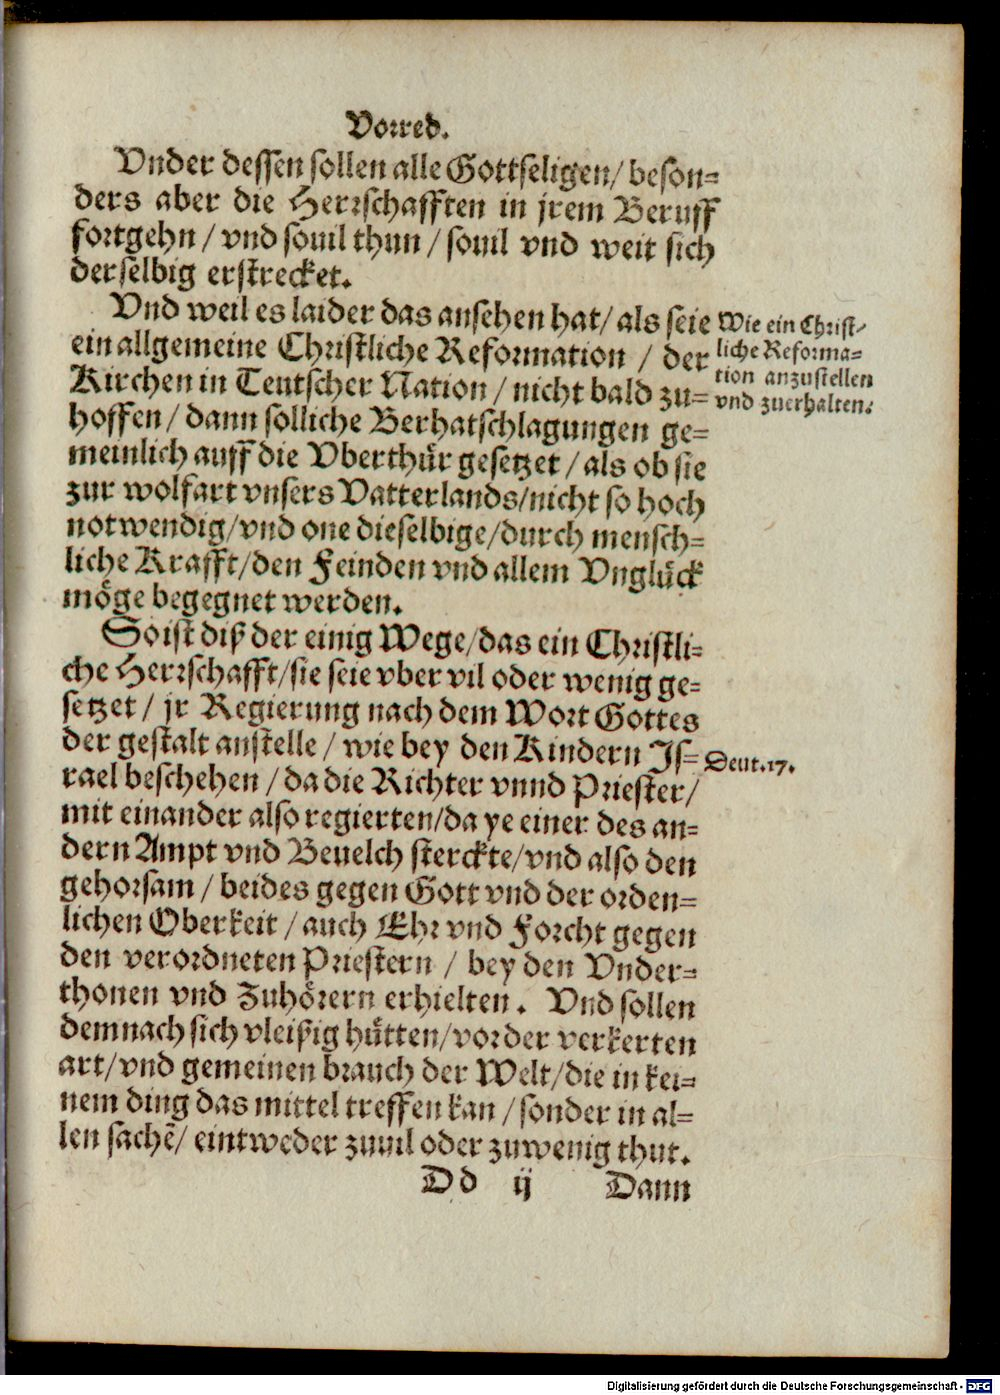 Vorred.
Vnder dessen sollen alle Gottseligen/ beson=
ders aber die Herrschafften in jrem Beruff
fortgehn / vnd souil thun / souil vnd weit sich
derselbig erstrecket.
Vnd weil es laider das ansehen hat/ als seie
ein allgemeine Christliche Reformation / der
Kirchen in Teutscher Nation / nicht bald zu=
hoffen / dann solliche Berhatschlagungen ge=
meinlich auff die Vberthür gesetzet / als ob sie
zur wolfart vnsers Vatterlands/nicht so hoch
notwendig/vnd one dieselbige/durch mensch=
liche Krafft/den Feinden vnd allem Vnglück
möge begegnet werden.
Wie ein Christ=
liche Reforma=
tion anzustellen
vnd zuerhalten.
So ist diß der einig Wege/das ein Christli=
che Herrschafft/sie seie vber vil oder wenig ge=
setzet / jr Regierung nach dem Wort Gottes
der gestalt anstelle / wie bey den Kindern Js=
rael beschehen / da die Richter vnnd Priester/
mit einander also regierten/da ye einer des an=
dern Ampt vnd Beuelch sterckte/vnd also den
gehorsam / beides gegen Gott vnd der orden=
lichen Oberkeit / auch Ehr vnd Forcht gegen
den verordneten Priestern / bey den Vnder=
thonen vnd Zuhörern erhielten. Vnd sollen
demnach sich vleißig hütten/vor der verkerten
art/vnd gemeinen brauch der Welt/die in kei=
nem ding das mittel treffen kan / sonder in al=
len sachẽ/ eintweder zuuil oder zuwenig thut.
Deut.17.
Dd ij Dann
Digitalisierung gefördert durch die Deutsche Forschungsgemeinschaft - DFG